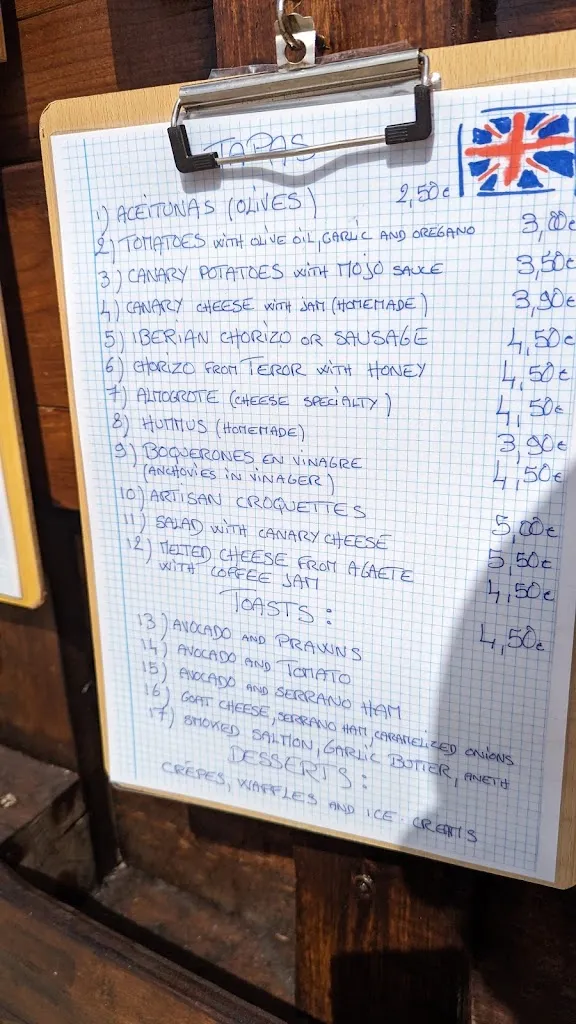 TAPAS
1) ACEITUNAS (OLIVES) 2,50€
2) TOMATOES WITH OLIVE OIL, GARLIC AND OREGANO 3,00€
3) CANARY POTATOES WITH MOJO SAUCE 3,50€
4) CANARY CHEESE WITH JAM (HOMEMADE) 3,90€
5) IBERIAN CHORIZO OR SAUSAGE 4,50€
6) CHORIZO FROM TEROR WITH HONEY 4,50€
7) ALMOGROTE (CHEESE SPECIALTY) 4,50€
8) HUMMUS (HOMEMADE) 3,90€
9) BOQUERONES EN VINAGRE 4,50€
(ANCHOVIES IN VINAGER)
10) ARTISAN CROQUETTES 5,00€
11) SALAD WITH CANARY CHEESE 5,50€
12) MELTED CHEESE FROM AGAETE 4,50€
WITH COFFEE JAM
TOASTS: 4,50€
13) AVOCADO AND PRAWNS
14) AVOCADO AND TOMATO
15) AVOCADO AND SERRANO HAM
16) GOAT CHEESE, SERRANO HAM, CARAMELIZED ONIONS
17) SMOKED SALMON, GARLIC BUTTER, ANETH
DESSERTS:
CRÊPES, WAFFLES AND ICE-CREAMS